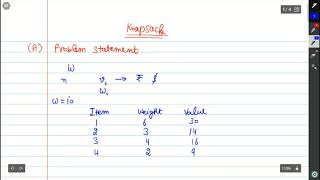 Knapsack
(A) Problem Statement
W
n vᵢ → ₹ $
wᵢ
W = 10
Item Weight Value
1 6 30
2 3 14
3 4 16
4 2 9
1 / 4